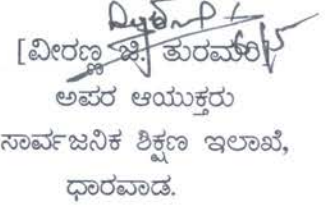 [ವೀರಣ್ಣ ಜಿ. ತುರಮರಿ]
ಅಪರ ಆಯುಕ್ತರು
ಸಾರ್ವಜನಿಕ ಶಿಕ್ಷಣ ಇಲಾಖೆ,
ಧಾರವಾಡ.